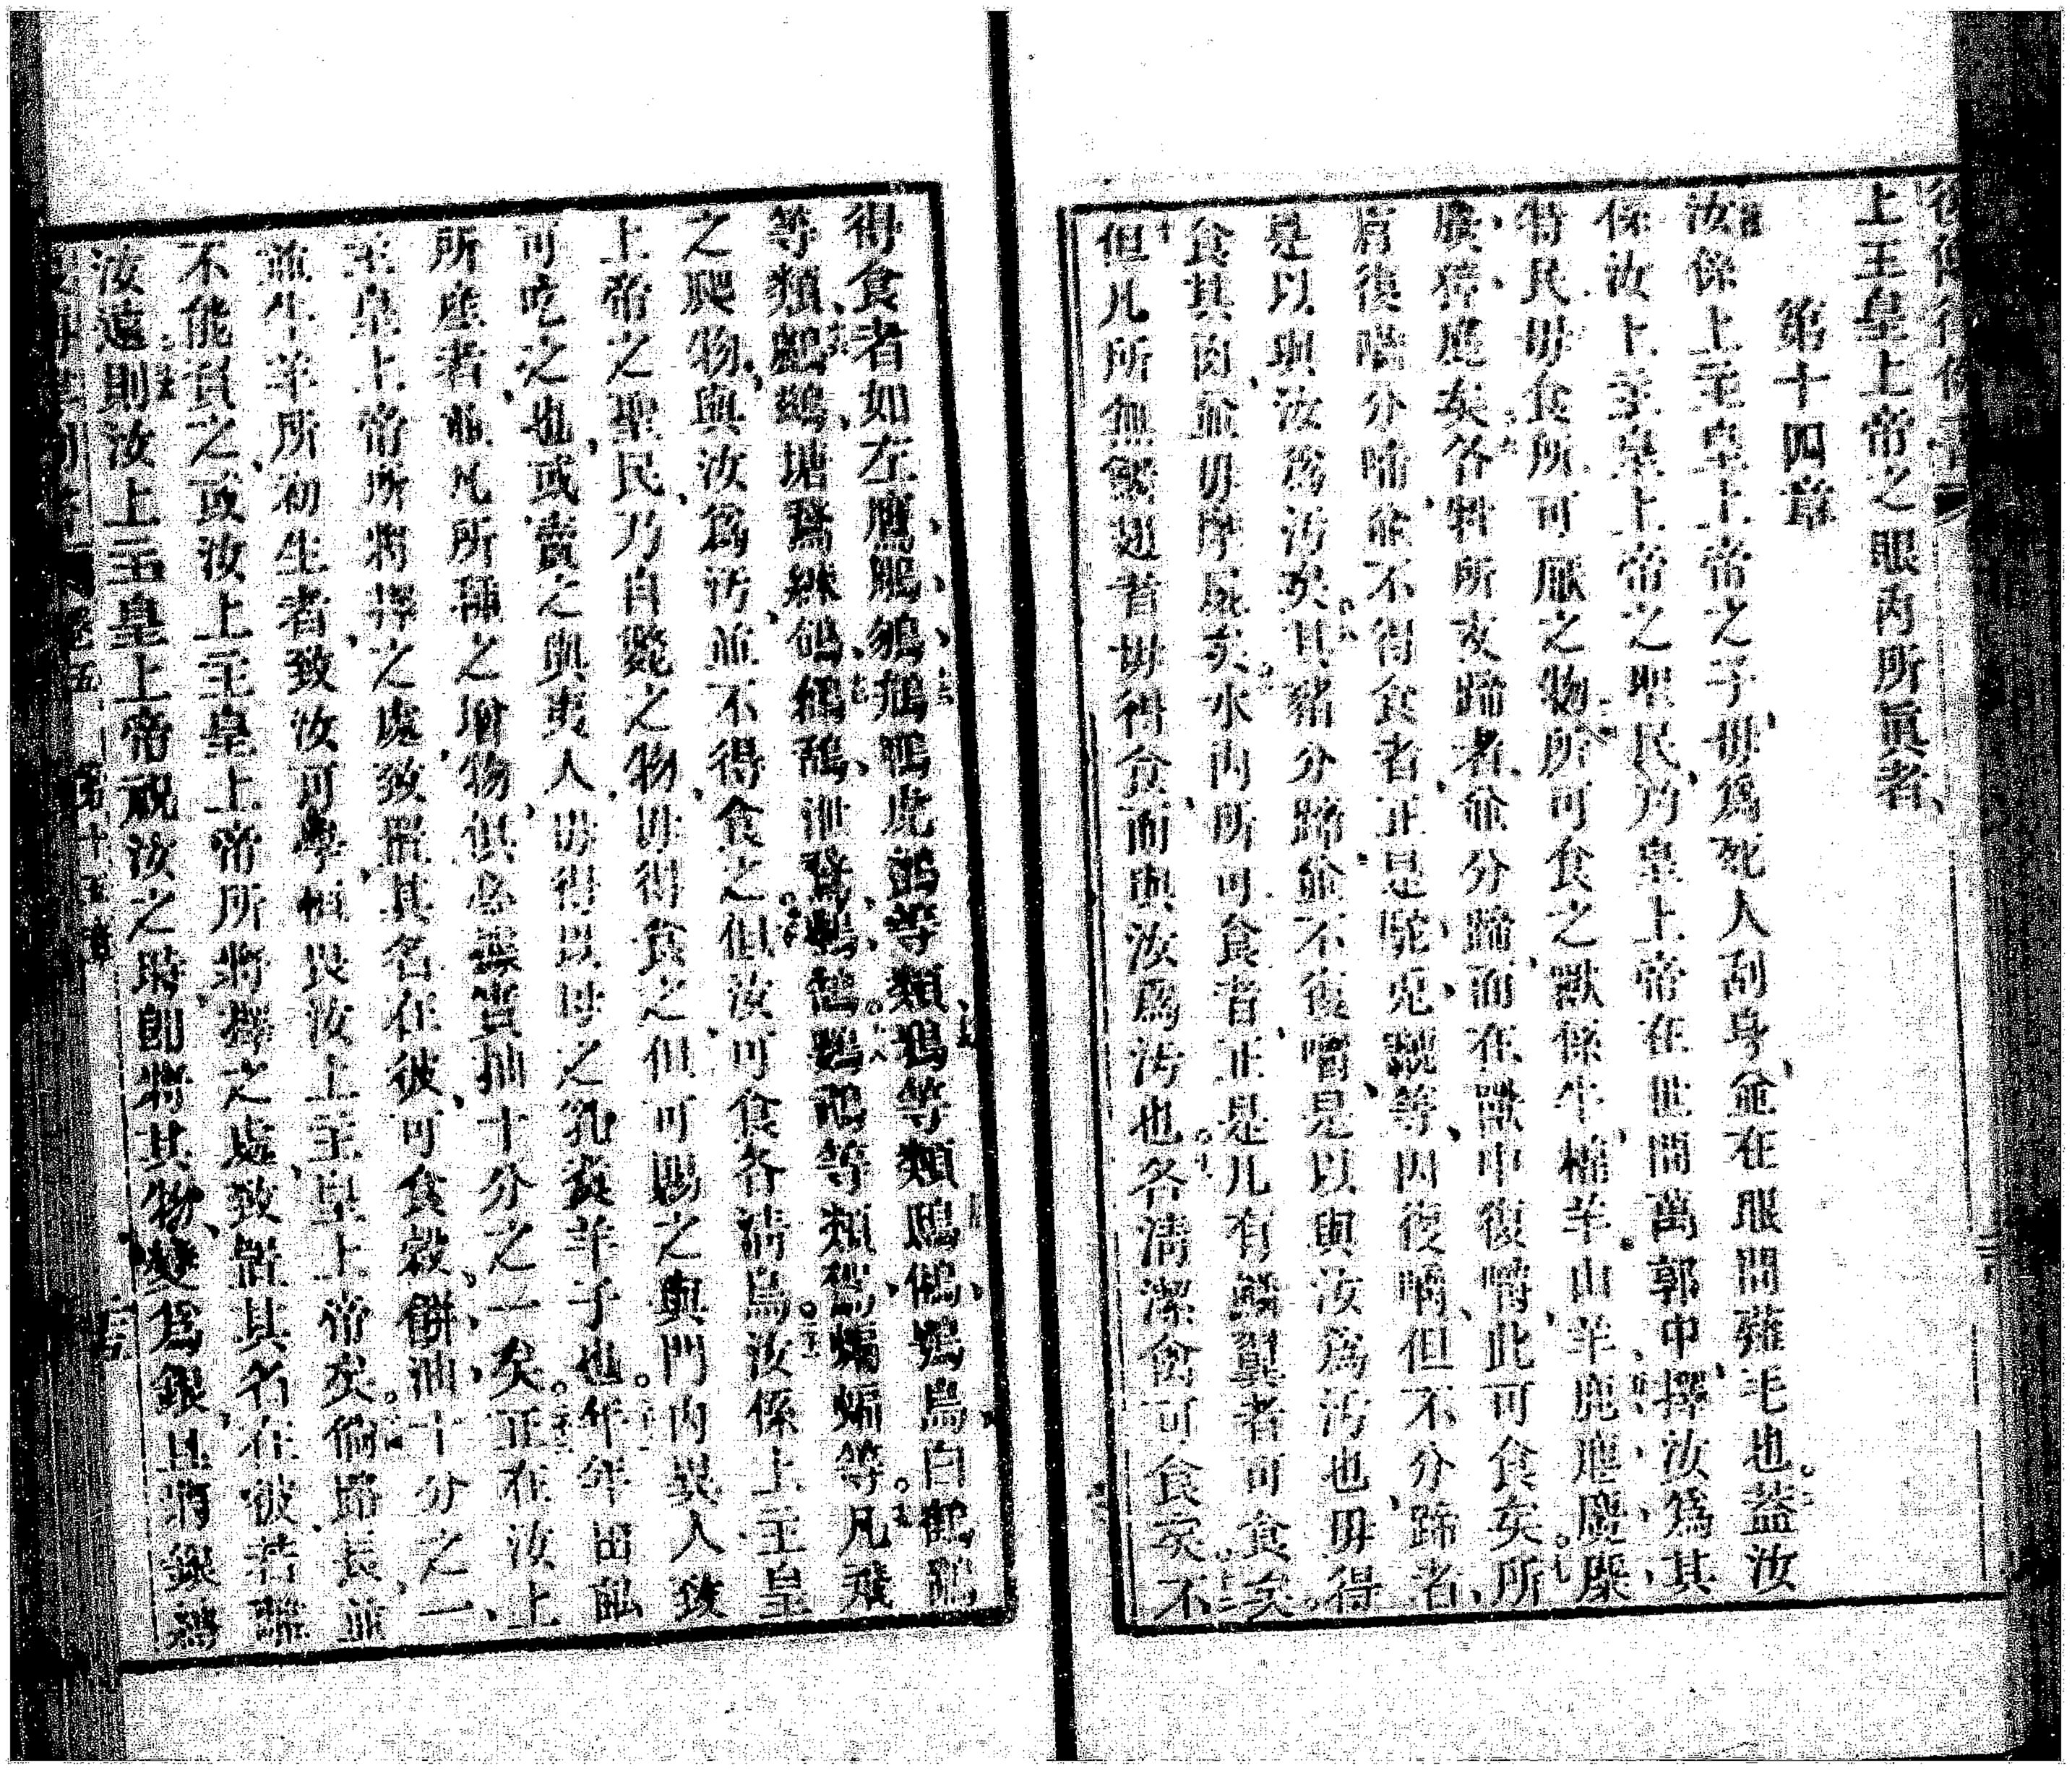 上主皇上帝之眼內所眞者
第十四章
汝係上主皇上帝之子毋爲死人刮身並在眼間薙毛也蓋汝
係汝上主皇上帝之聖民乃皇上帝在世間萬郭中擇汝爲其
特民毋食所可厭之物所可食之獸係牛棉羊山羊鹿
矣各牲所支蹄者並分蹄而在獸中復嚼此可食矣所
復嚼分蹄並不得食者正是駝兎等因復嚼但不分蹄者
是以與汝爲汚矣其豬分蹄並不復嚼是以與汝爲汚也毋得
食其肉並毋摩屍矣水內所可食者正是凡有鱗翼者可食矣
但凡所無鱗翅者毋得食而與汝爲汚也各淸潔禽可食矣不
得食者如左鷹等類鴉等類鳥白鶴
等類塘鵞等類蝙蝠等凡飛
之爬物與汝爲汚並不得食之但汝可食各淸鳥汝係上主皇
上帝之聖民乃自斃之物毋得食之但可賜之與門內異人致
可吃之也或賣之與夷人毋得以母之乳煮羊子也年年田畝
所產者並凡所種之增物俱必抽十分之一矣正在汝上
主皇上帝所將擇之處致置其名在彼可食穀餅油十分之一
並牛羊所初生者致汝可學恒畏汝上主皇上帝矣倘路長並
不能負之或汝上主皇上帝所將擇之處致置其名在彼若離
汝遠則汝上主皇上帝祝汝之時卽將其物變爲銀且將銀
卷五 第十五章